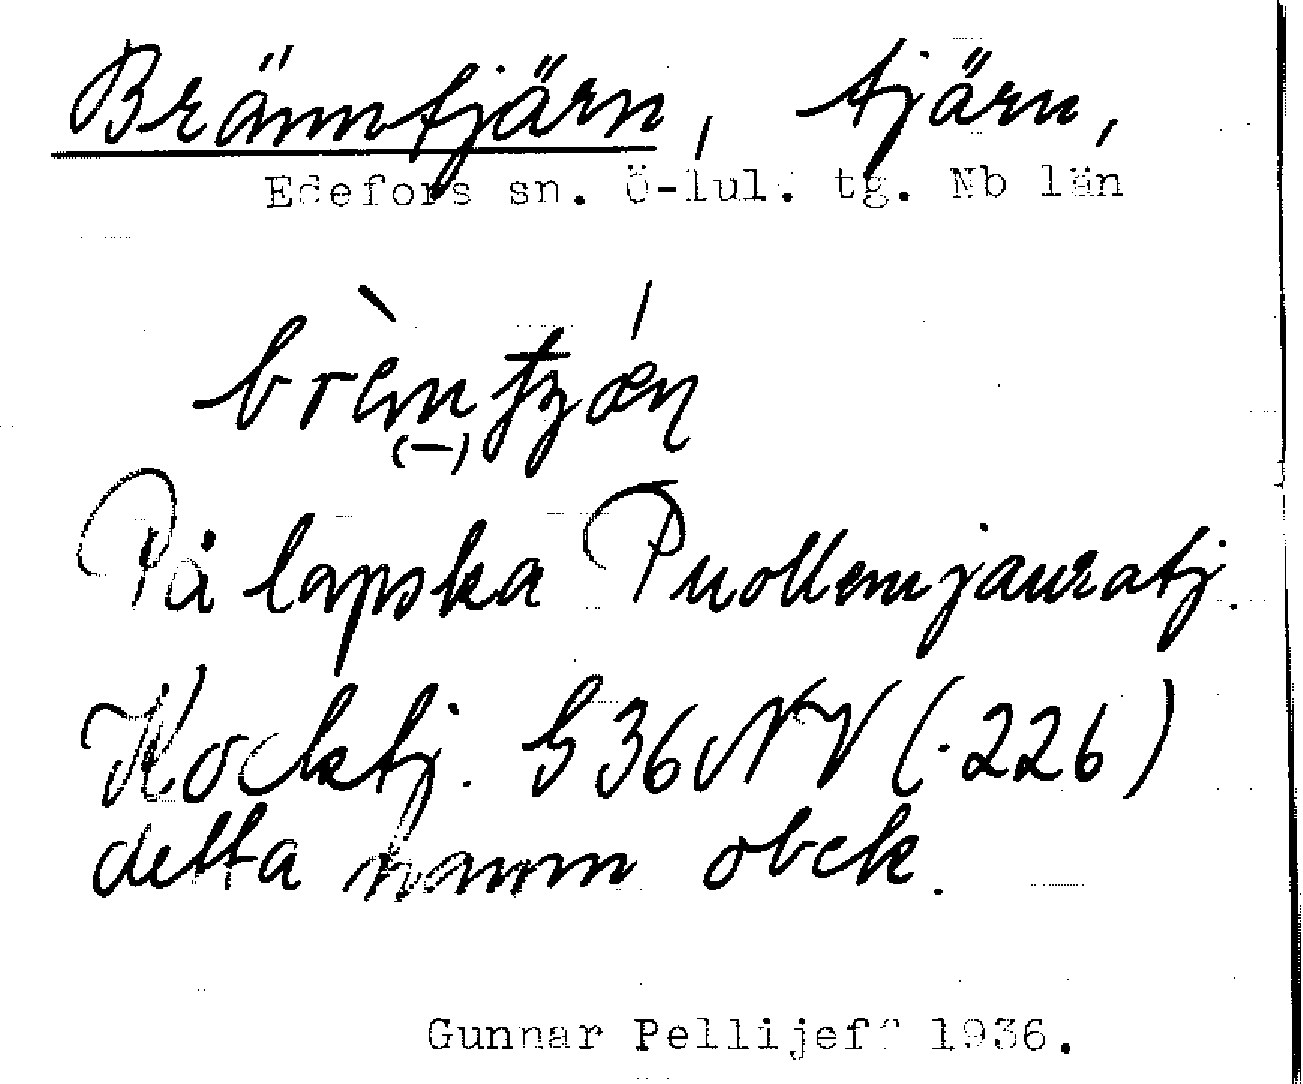 Bränntjärn, tjärn,
Edefors sn. Ö-lul. tg. Nb län
På lapska Puollemjauratj.
Kocktj. G 36 NV (.226)
detta namn obek.
Gunnar Pellijeff 1936.